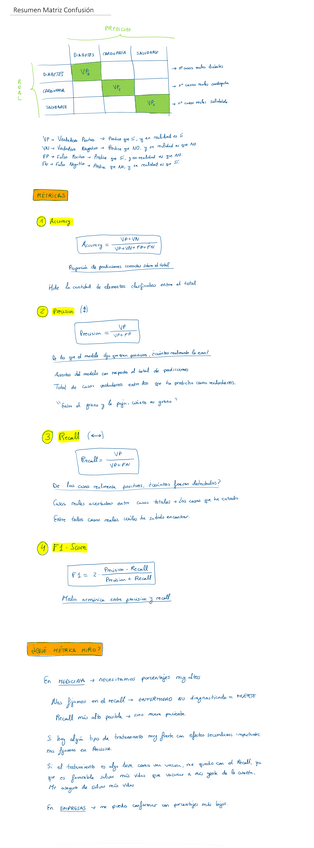 Resumen Matriz Confusión
PREDICCIÓN
DIABETES CARDIOPATÍA SALUDABLE
DIABETES VP → nº casos reales diabetes
CARDIOPATÍA VP → nº casos reales cardiopatía
SALUDABLE VP → nº casos reales saludable
REAL
VP = Verdadero Positivo → Predice que SÍ, y en realidad es SÍ
VN = Verdadero Negativo → Predice que NO, y en realidad es que NO
FP = Falso Positivo → Predice que SÍ, y en realidad es que NO.
FN = Falso Negativo → Predice que NO, y en realidad es que SÍ.
MÉTRICAS
1 Accuracy
Accuracy = VP+VN / VP+VN+FP+FN
Proporción de predicciones correctas sobre el total
Mide la cantidad de elementos clasificados entre el total
2 Precision
Precision = VP / VP+FP
De los que el modelo dijo que eran positivos, ¿cuántos realmente lo eran?
Aciertos del modelo con respecto al total de predicciones
Total de casos verdaderos entre los que ha predicho como verdaderos.
3 Recall
Recall = VP / VP+FN
De los casos realmente positivos, ¿cuántos fueron detectados?
Casos reales acertados entre casos totales
Entre todos casos reales cuántos he sabido encontrar.
4 F1-Score
F1 = 2 · Precision · Recall / Precision + Recall
Media armónica entre precision y recall
¿QUÉ MÉTRICA MIRO?
En MEDICINA → NECESITAMOS porcentajes muy altos
Nos fijamos en el recall → ENFERMEDAD NO diagnosticada = MUERTE
Recall más alto posible →
Si hay algún tipo de tratamiento muy fuerte con efectos secundarios importantes,
nos fijamos en Precision.
Si el tratamiento es algo leve como una vacuna, me quedo con el Recall, ya
que es preferible salvar más vidas que vacunar a más gente de la cuenta.
Me aseguro de salvar más vidas
En EMPRESAS → me puedo conformar con porcentajes más bajos.